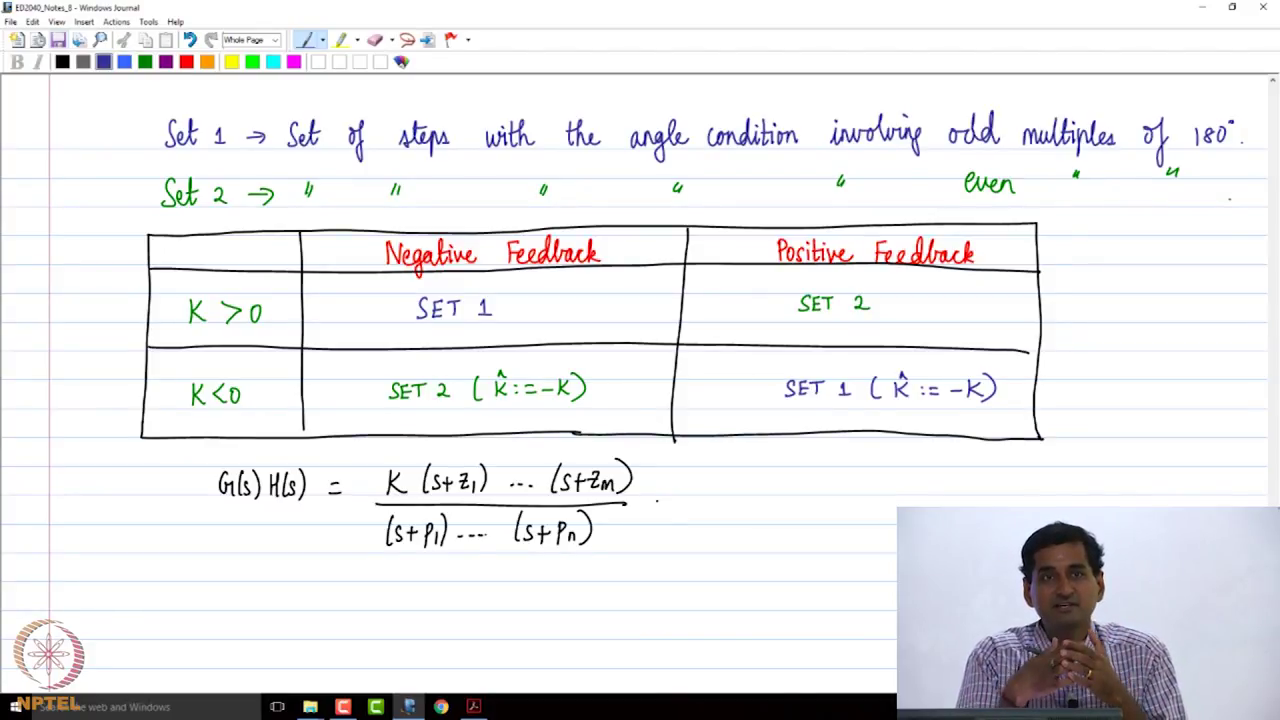 ED2040_Notes_8 - Windows Journal
File Edit View Insert Actions Tools Help
Whole Page
B I
Set 1 → Set of steps with the angle condition involving odd multiples of 180°.
Set 2 → " " " " " even " "
Negative Feedback Positive Feedback
K > 0 SET 1 SET 2
K < 0 SET 2 ( K̂ := -K) SET 1 ( K̂ := -K)
G(s) H(s) = K (s+z₁) ... (s+zₘ)
(s+p₁) .... (s+pₙ)
NPTEL
Search the web and Windows